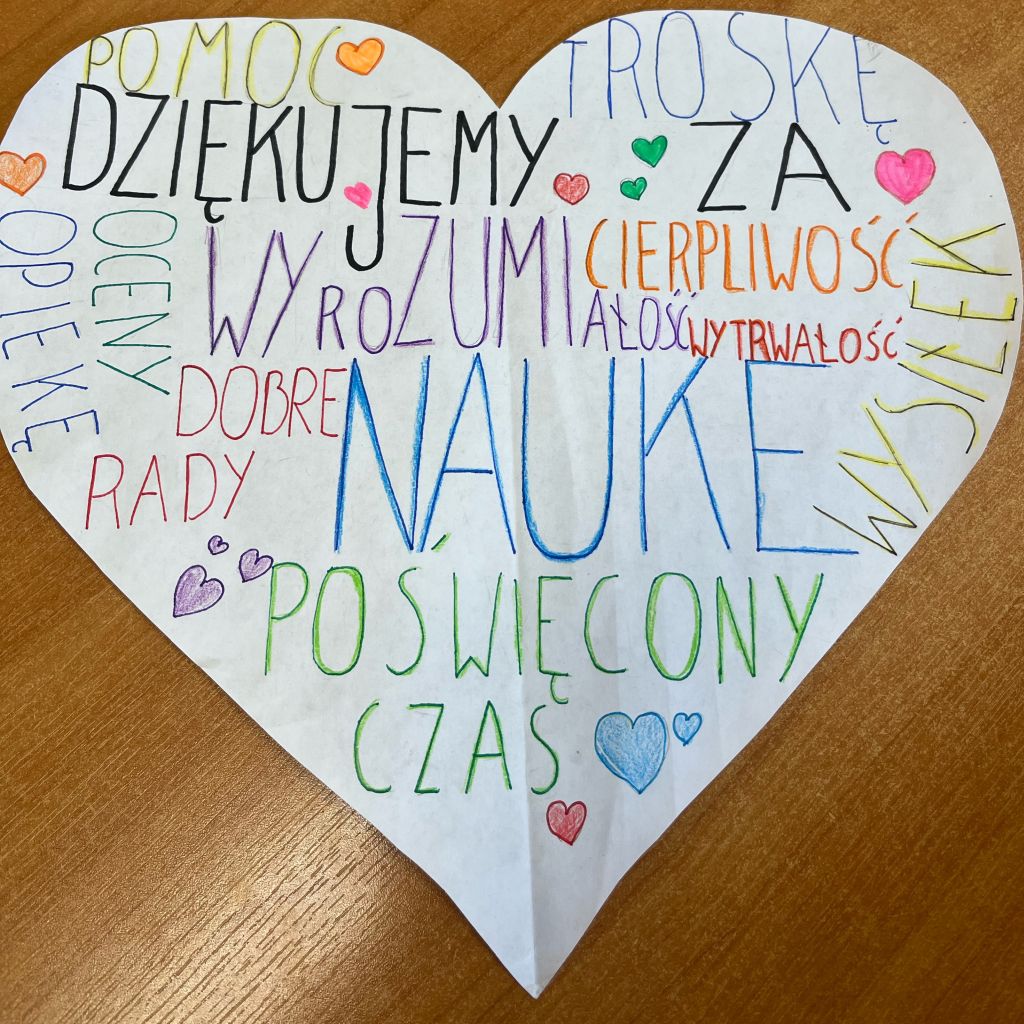 POMOC
TROSKĘ
DZIĘKUJEMY ZA
OPIEKĘ
OCENY
WYROZUMI
AŁOŚĆ
CIERPLIWOŚĆ
WYTRWAŁOŚĆ
WYSIŁEK
DOBRE
RADY
NAUKE
POŚWIĘCONY
CZAS